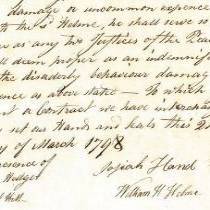 damage or uncommon expence
to the sd. Helme, he shall serve so
as any two Justices of the Peac
ll deem proper as an indemnif
the disorderly behaviour damag
ence as above state — To which
t or Contract we have interchan
set our Hands and Seals this 2
y of March 1798
esence of
Hedges
Josiah Hand
William H. Helme